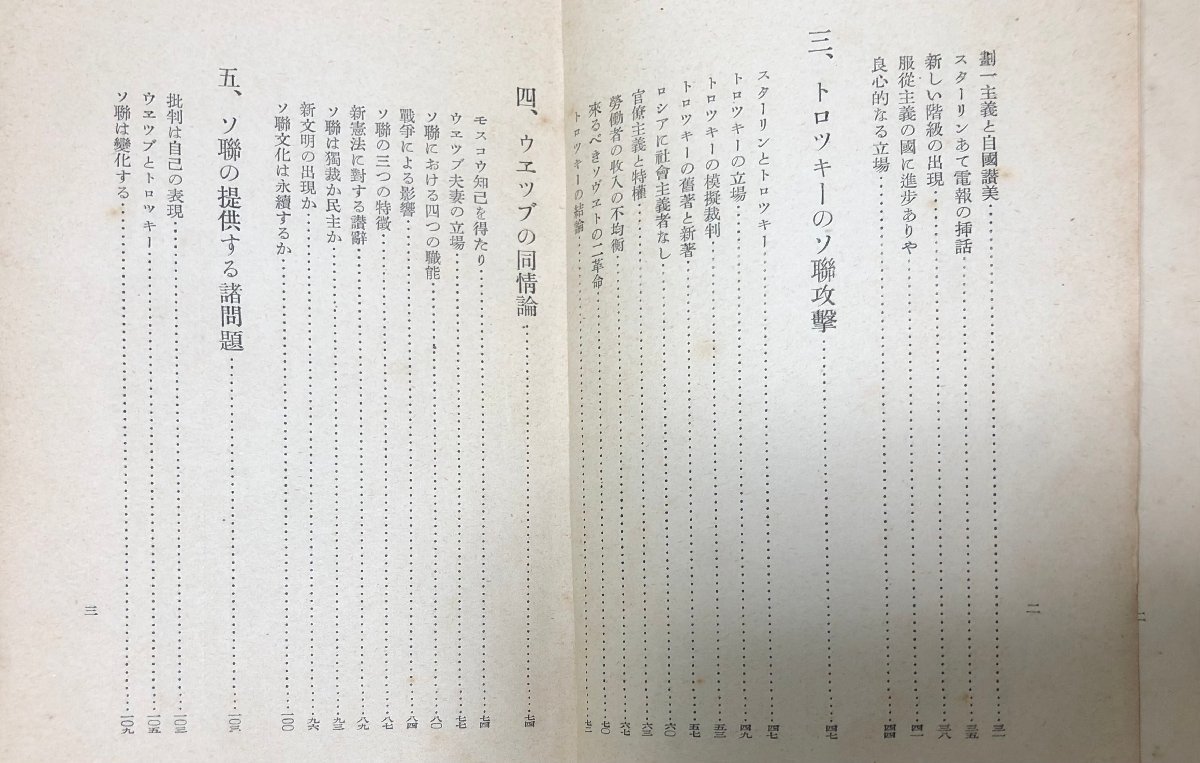 劃一主義と自國讃美……三一
スターリンあて電報の挿話……三五
新しい階級の出現……三八
服從主義の國に進歩ありや……四一
良心的なる立場……四四
三、トロツキーのソ聯攻擊……四七
スターリンとトロツキー……四七
トロツキーの立場……四九
トロツキーの模擬裁判……五三
トロツキーの舊著と新著……五七
ロシアに社會主義者なし……六〇
官僚主義と特權……六三
勞働者の收入の不均衡……六七
來るべきソヴエトの二革命……七〇
トロツキーの結論……七二
二
四、ウエツブの同情論……七四
モスコウ知己を得たり……七四
ウエツブ夫妻の立場……七七
ソ聯における四つの職能……八〇
戰爭による影響……八四
ソ聯の三つの特徵……八七
新憲法に對する讃辭……八九
ソ聯は獨裁か民主か……九三
新文明の出現か……九六
ソ聯文化は永續するか……一〇〇
五、ソ聯の提供する諸問題……一〇三
批判は自己の表現……一〇三
ウエツブとトロツキー……一〇五
ソ聯は變化する……一〇九
三